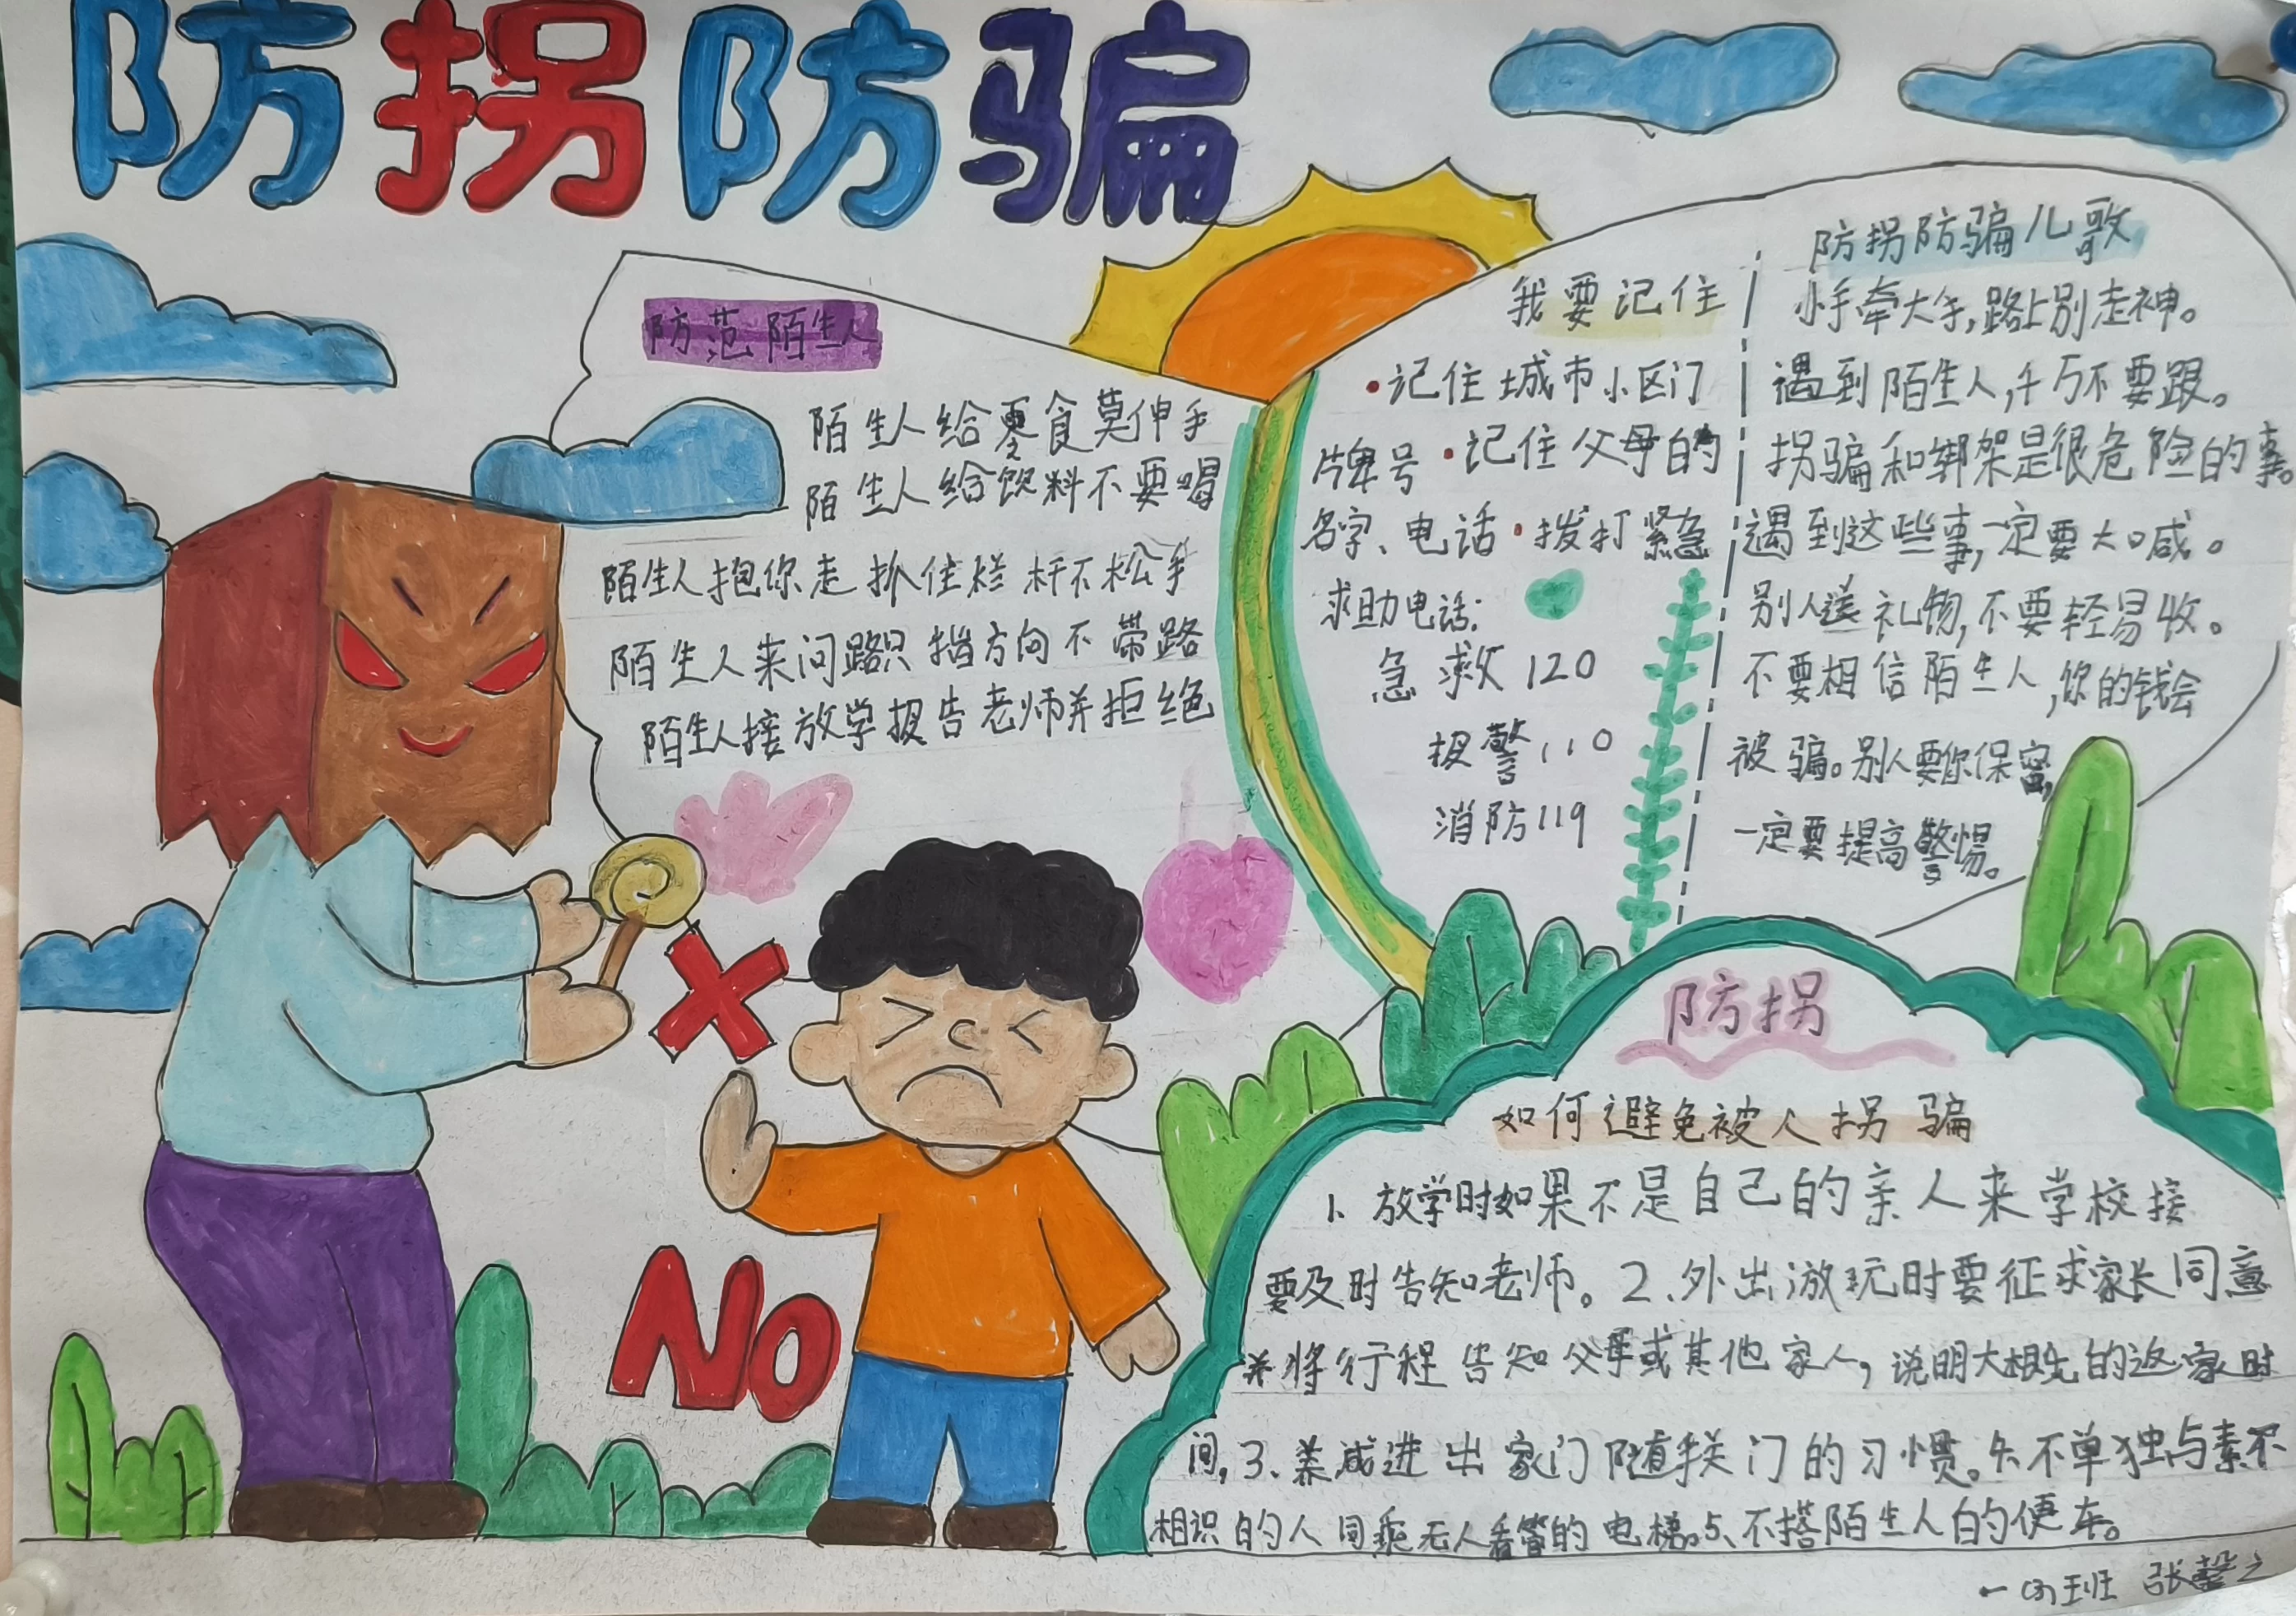 防拐防骗
防范陌生人
陌生人给零食莫伸手
陌生人给饮料不要喝
陌生人抱你走抓住栏杆不松手
陌生人来问路只指方向不带路
陌生人接放学报告老师并拒绝
NO
我要记住
·记住城市小区门
牌号·记住父母的
名字、电话·拨打紧急
求助电话:
急救120
报警110
消防119
防拐防骗儿歌
小手牵大手,路上别走神。
遇到陌生人,千万不要跟。
拐骗和绑架是很危险的事。
遇到这些事,一定要大喊。
别人送礼物,不要轻易收。
不要相信陌生人,你的钱会
被骗。别人要你保密,
一定要提高警惕。
防拐
如何避免被人拐骗
1、放学时如果不是自己的亲人来学校接
要及时告知老师。2、外出游玩时要征求家长同意
并将行程告知父母或其他家人,说明大概的返家时
间,3、养成进出家门随手关门的习惯。4、不单独与素不
相识的人同乘无人看管的电梯。5、不搭陌生人的便车。
班 张馨之